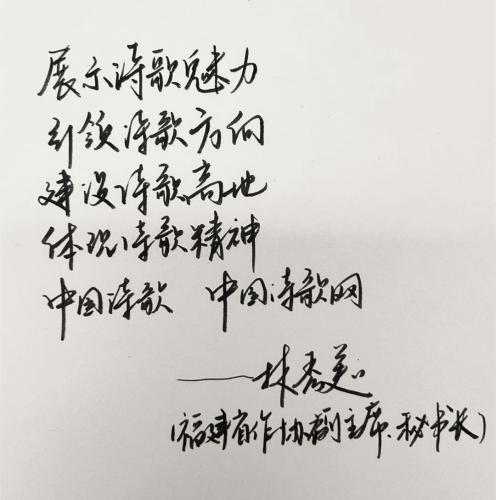 展示诗歌魅力
引领诗歌方向
建设诗歌高地
体现诗歌精神
中国诗歌 中国诗歌网
——林秀美
(福建省作协副主席、秘书长)